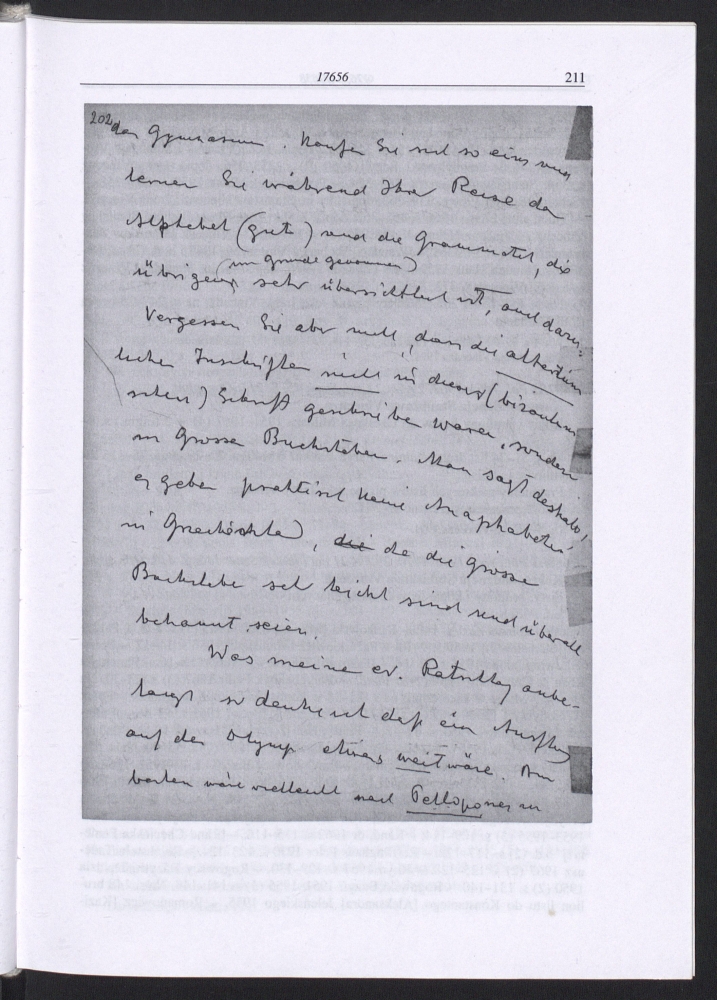 17656 211
202
der Gymnasium. Kaufen Sie sich so eins und
lernen Sie während Ihrer Reise das
Alphabet (gut) und die Grammatik, die
(im Grunde genommen)
übrigens sehr übersichtlich ist, auch dazu.
Vergessen Sie aber nicht, dass die altertüm
lichen Inschriften nicht in dieser (bizantini
schen) Schrift geschrieben waren, sondern
in Grosse Buchstaben. Man sagt deshalb,
es geben praktisch keine Anaphabeten
in Griechenland, die da die Grosse
Buchstabe sehr leicht sind und überall
bekannt seien.
Was meine ev. Ratschlag anbe-
langt so denke ich daß ein Ausflug
auf den Olymp etwas weit wäre. Am
besten wäre vielleicht nach Pelloponnes zu